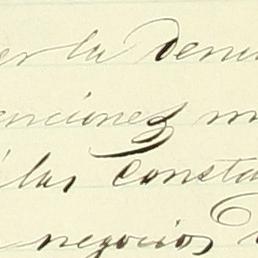 er la denu
enciones m
á las consta
negocios